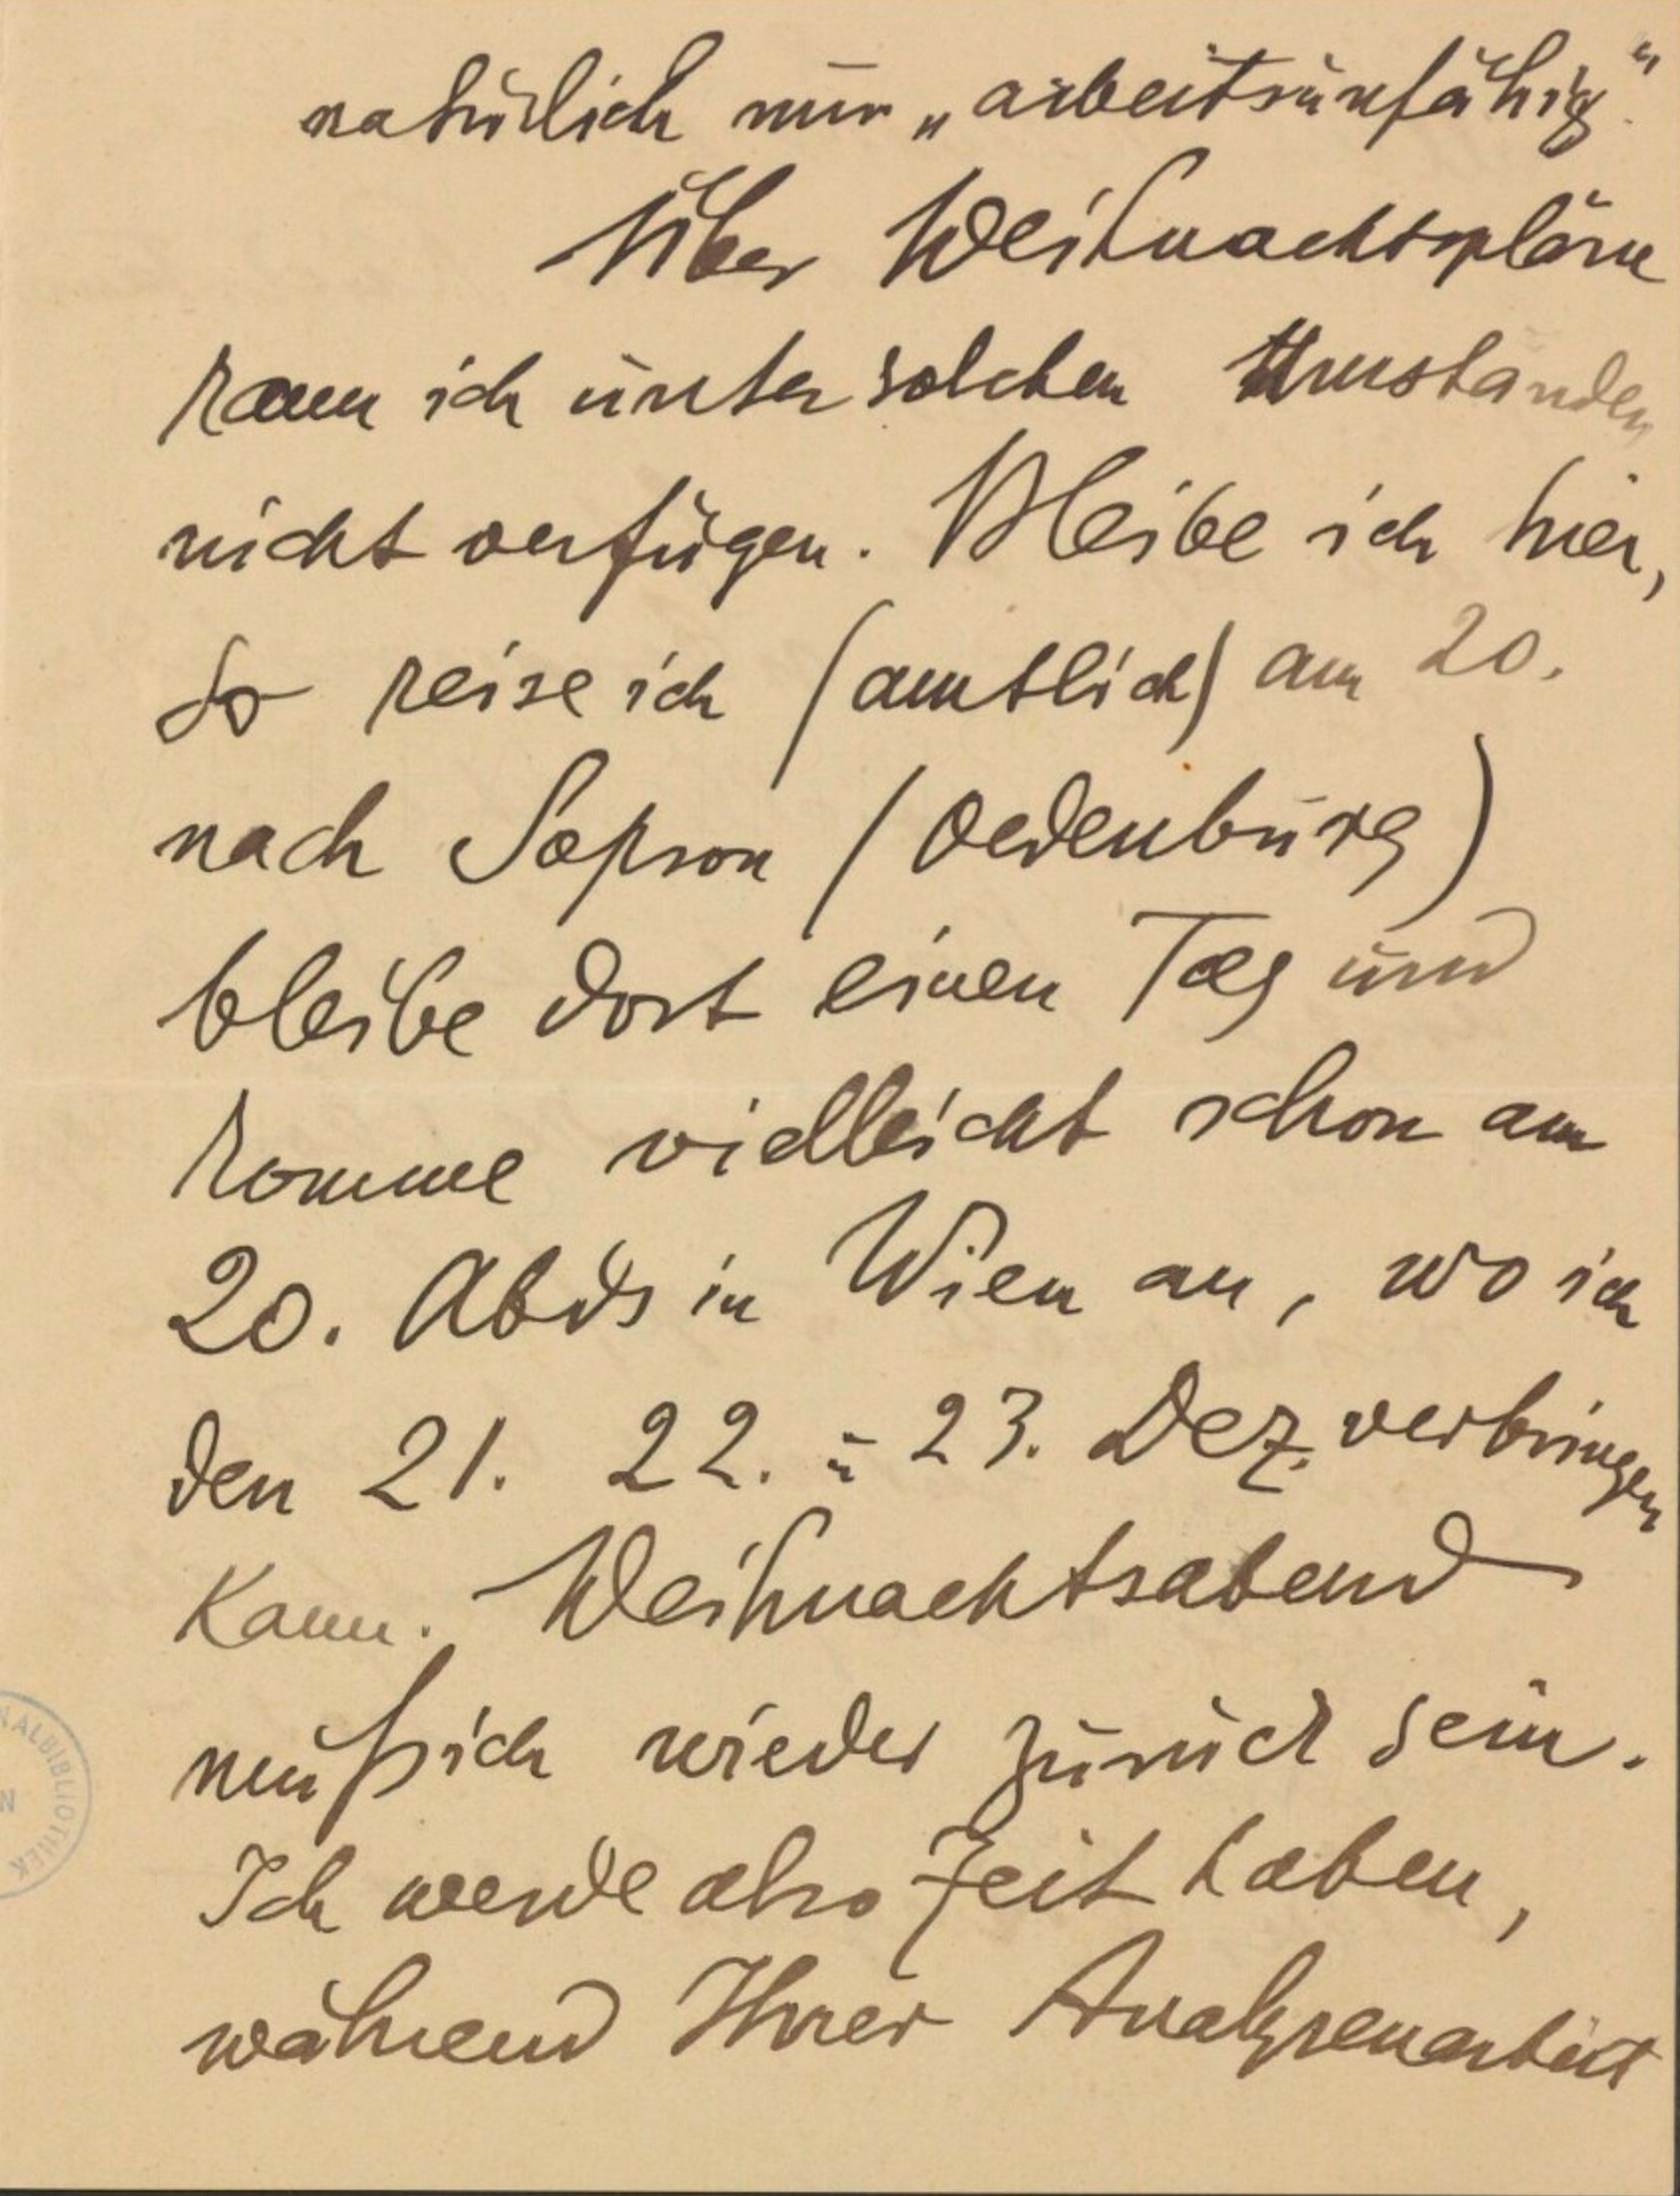 natürlich nur „arbeitsunfähig“.
Über Weihnachtspläne
kann ich unter solchen Umständen
nicht verfügen. Bleibe ich hier,
so reise ich (amtlich) am 20.
nach Sopron (Oedenburg)
bleibe dort einen Tag und
komme vielleicht schon am
20. Abds in Wien an, wo ich
den 21. 22. u 23. Dez. verbringen
kann. Weihnachtsabend
muß ich wieder zurück sein.
Ich werde also Zeit haben,
während Ihrer Analysenarbeit
NALBIBLIOTHEK